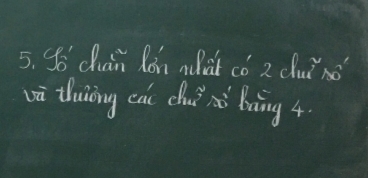 5. Số chẵn lớn nhất có 2 chữ số
và thương các chữ số bằng 4.